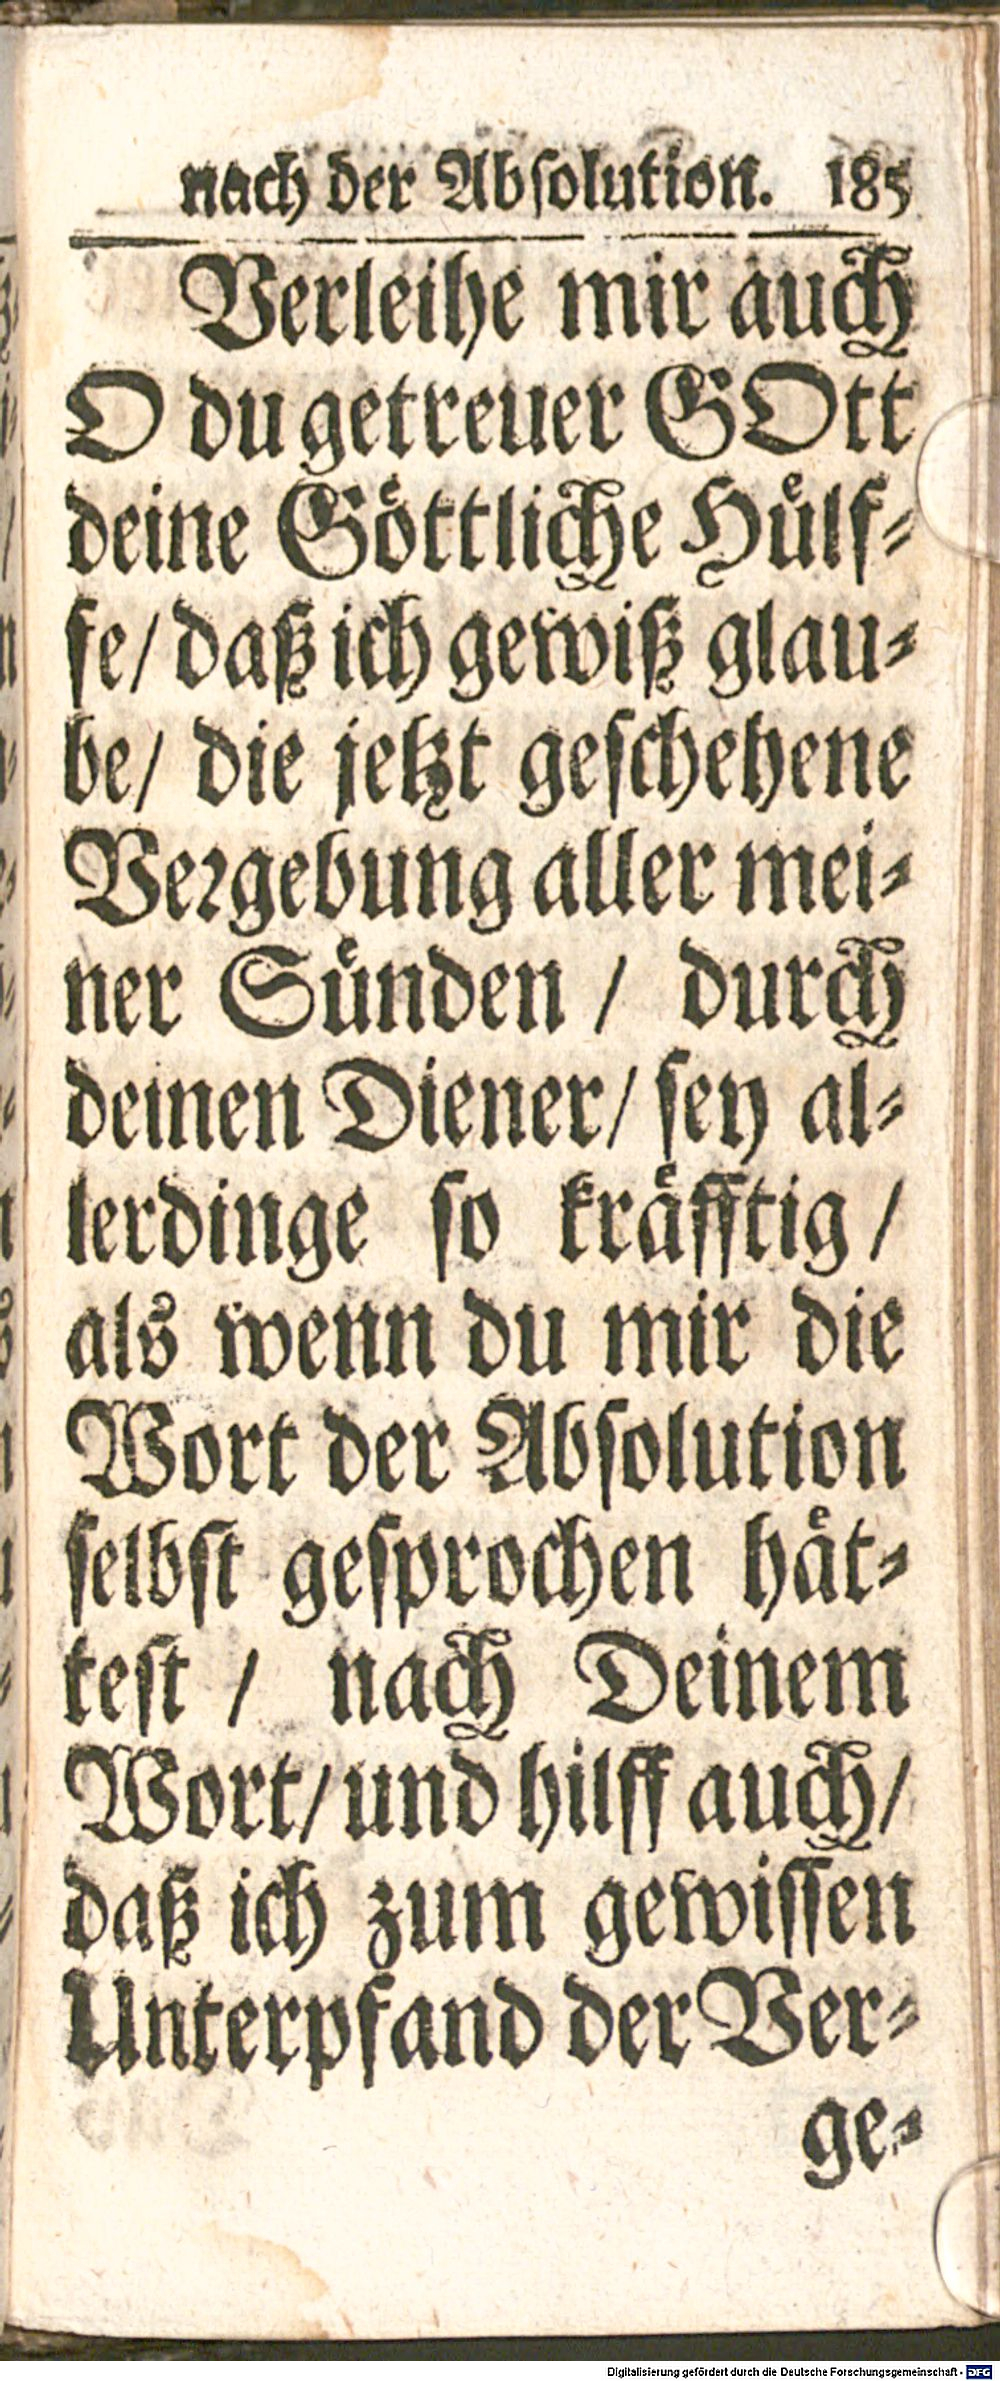 nach der Abſolution. 185
Verleihe mir auch
O du getreuer GOtt
deine Goͤttliche Huͤlf⸗
fe/ daß ich gewiß glau⸗
be/ die jetzt geſchehene
Veꝛgebung aller mei⸗
ner Suͤnden / durch
deinen Diener/ ſey al⸗
lerdinge ſo kraͤfftig /
als wenn du mir die
Wort der Abſolution
ſelbſt geſprochen haͤt⸗
teſt / nach Deinem
Wort/ und hilff auch/
daß ich zum gewiſſen
Unterpfand der Ver⸗
ge⸗
Digitalisierung gefördert durch die Deutsche Forschungsgemeinschaft - DFG